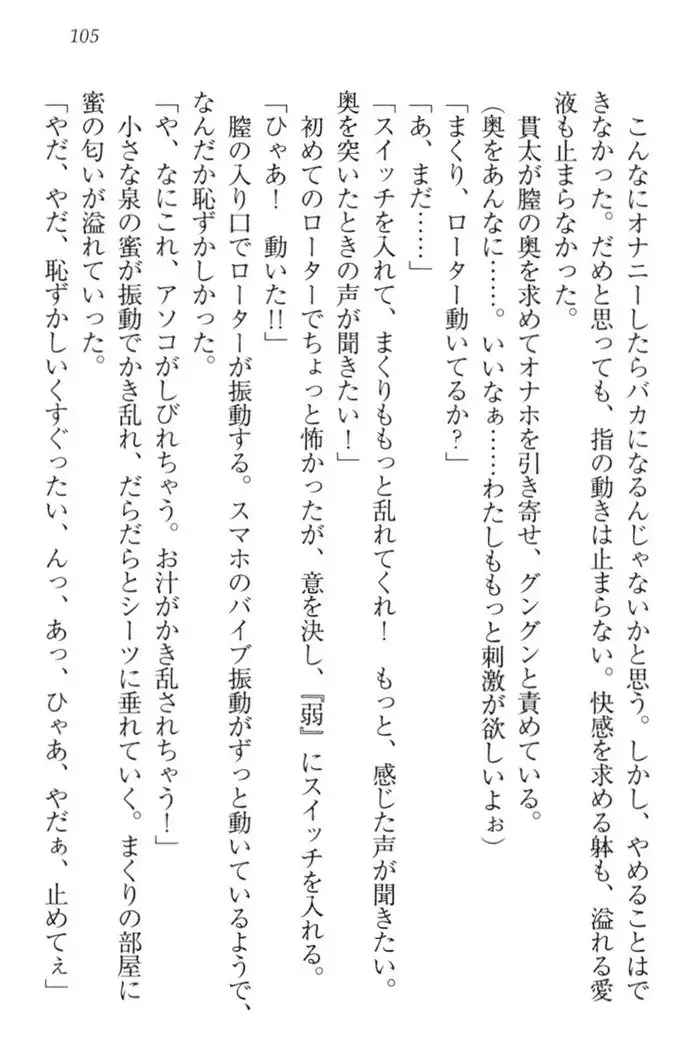 105
こんなにオナニーしたらバカになるんじゃないかと思う。しかし、やめることはで
きなかった。だめと思っても、指の動きは止まらない。快感を求める躰も、溢れる愛
液も止まらなかった。
貫太が膣の奥を求めてオナホを引き寄せ、グングンと責めている。
(奥をあんなに……。いいなぁ……わたしももっと刺激が欲しいよぉ)
「まくり、ローター動いてるか？」
「あ、まだ……」
「スイッチを入れて、まくりももっと乱れてくれ！　もっと、感じた声が聞きたい。
奥を突いたときの声が聞きたい！」
初めてのローターでちょっと怖かったが、意を決し、『弱』にスイッチを入れる。
「ひゃあ！　動いた!!」
膣の入り口でローターが振動する。スマホのバイブ振動がずっと動いているようで、
なんだか恥ずかしかった。
「や、なにこれ、アソコがしびれちゃう。お汁がかき乱されちゃう！」
小さな泉の蜜が振動でかき乱れ、だらだらとシーツに垂れていく。まくりの部屋に
蜜の匂いが溢れていった。
「やだ、やだ、恥ずかしいくすぐったい、んっ、あっ、ひゃあ、やだぁ、止めてぇ」